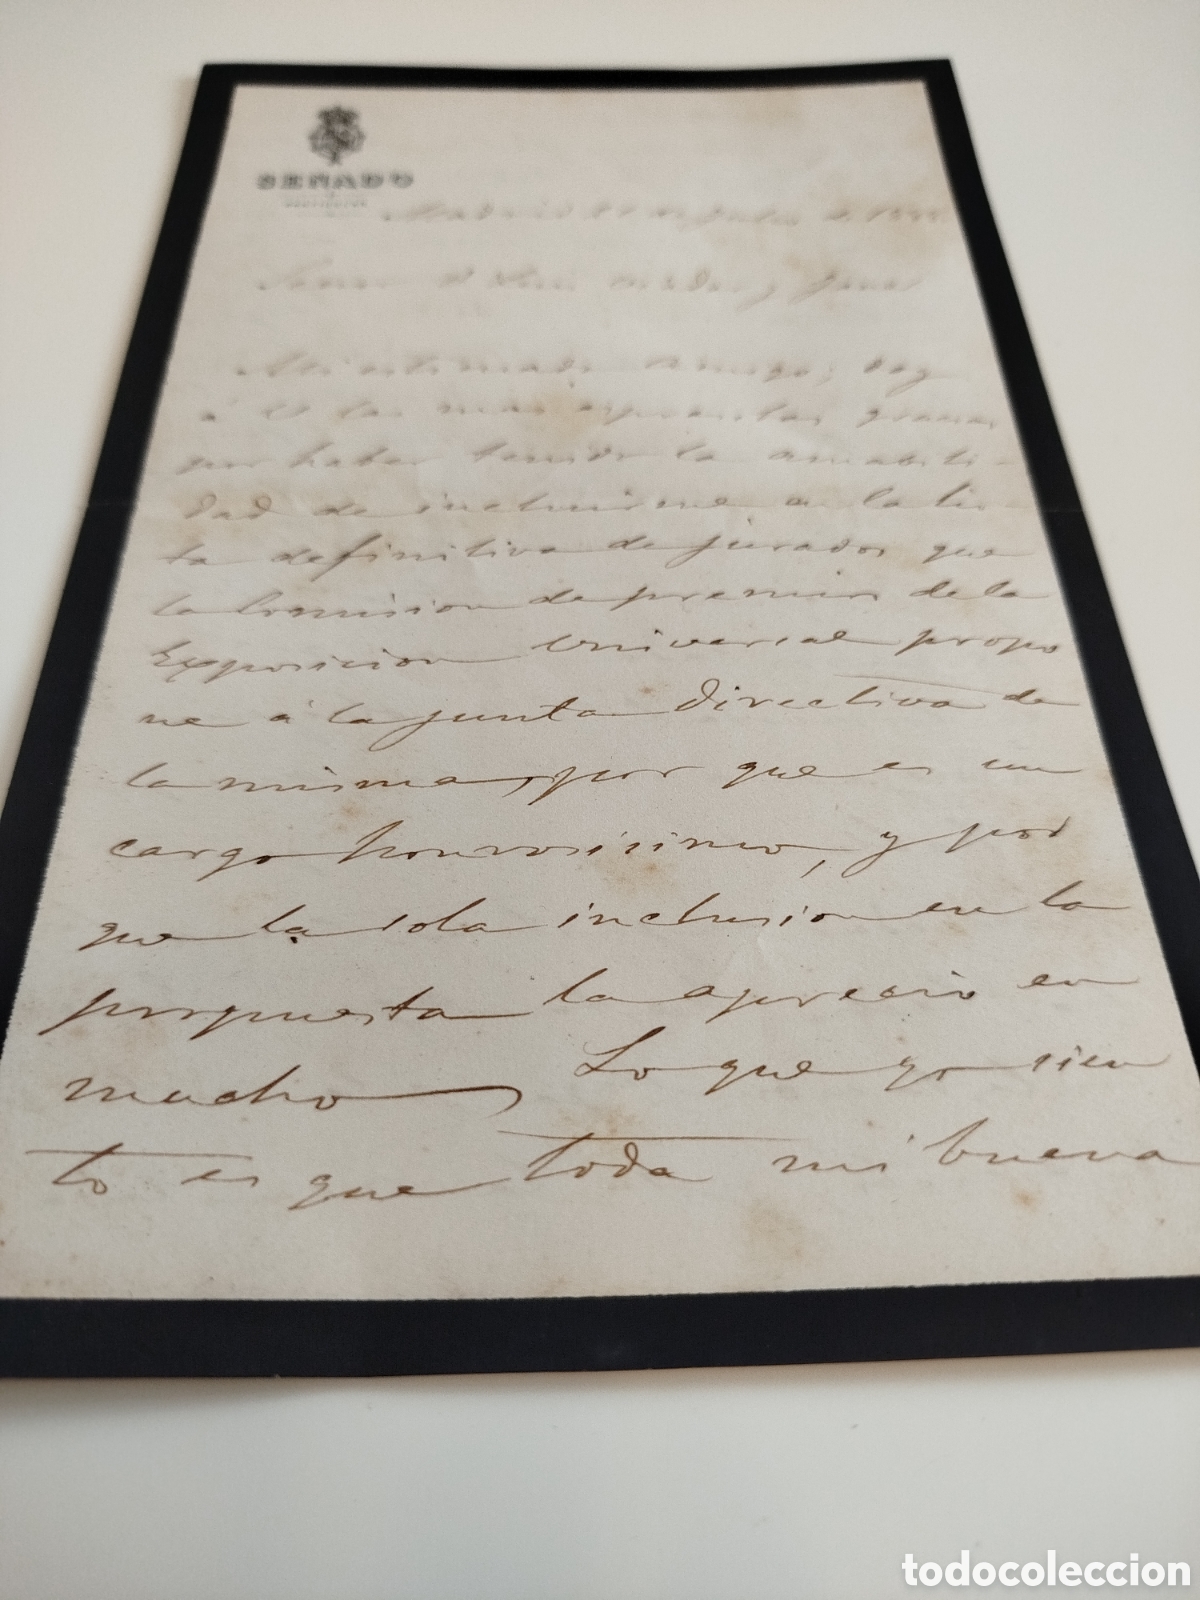 SENADO
Madrid de Julio de 1888
Señor D
Mi estimado Amigo; doy
á U las mas espresivas gracias
por haber tenido la amabili-
dad de incluirme en la lis
ta definitiva de jurados que
la Comision de premios de la
Exposicion Universal propo
ne á la junta Directiva de
la misma, por que es un
cargo honrosisimo, y por
que la sola inclusion en la
propuesta la aprecio en
mucho, Lo que yo sien
to es que toda mi buena
todocoleccion